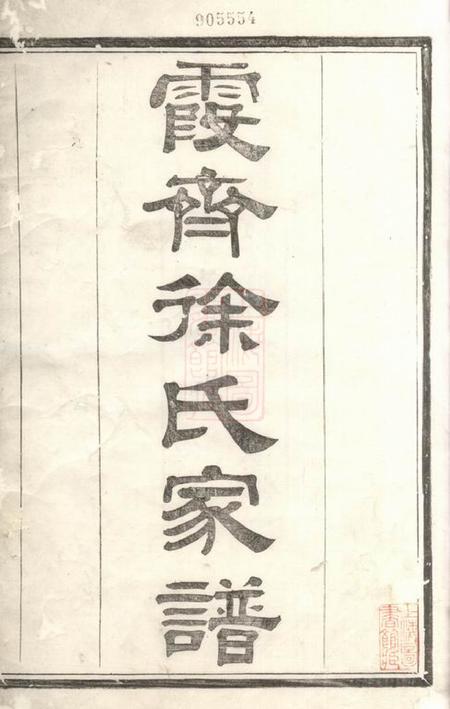 905554
霞齊徐氏家譜
上海圖書館藏